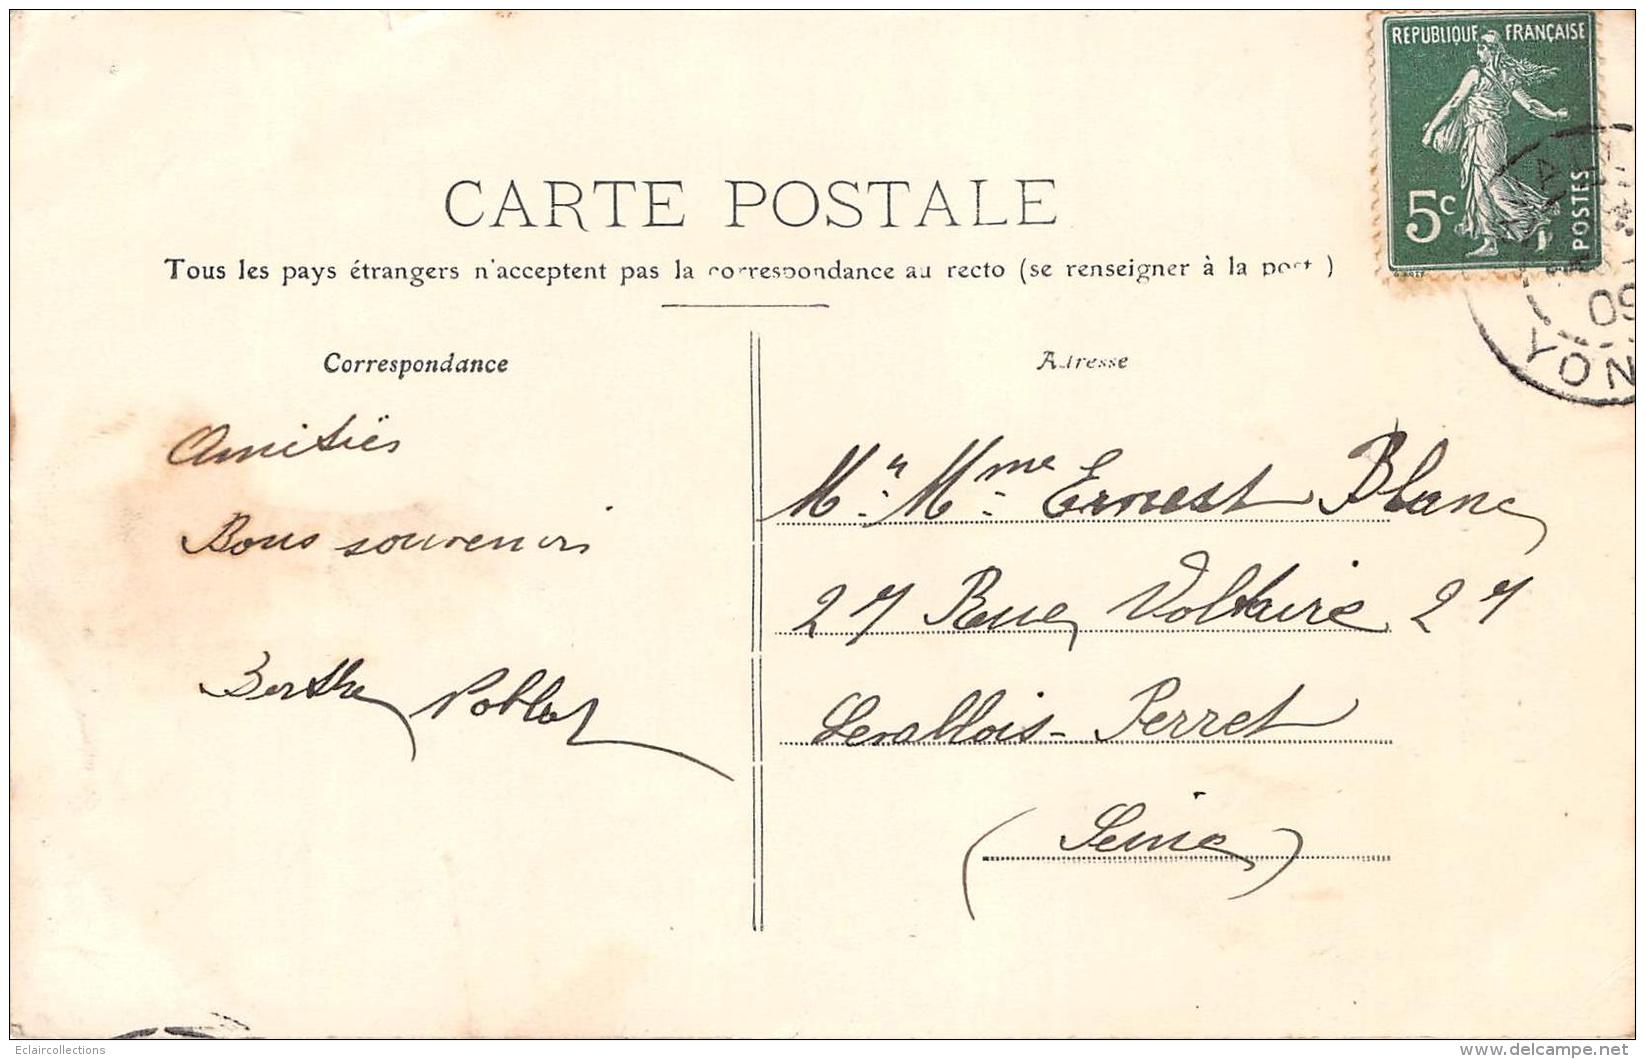 REPUBLIQUE FRANÇAISE
5c
POSTES
09
YON
CARTE POSTALE
Tous les pays étrangers n'acceptent pas la correspondance au recto (se renseigner à la poste)
Correspondance
Amitiés
Bons souvenirs
Berthe Poblot
Adresse
Mr. Mme. Ernest Blanc
27 Rue Voltaire 27
Levallois-Perret
(Seine)
Eclaircollections
www.delcampe.net